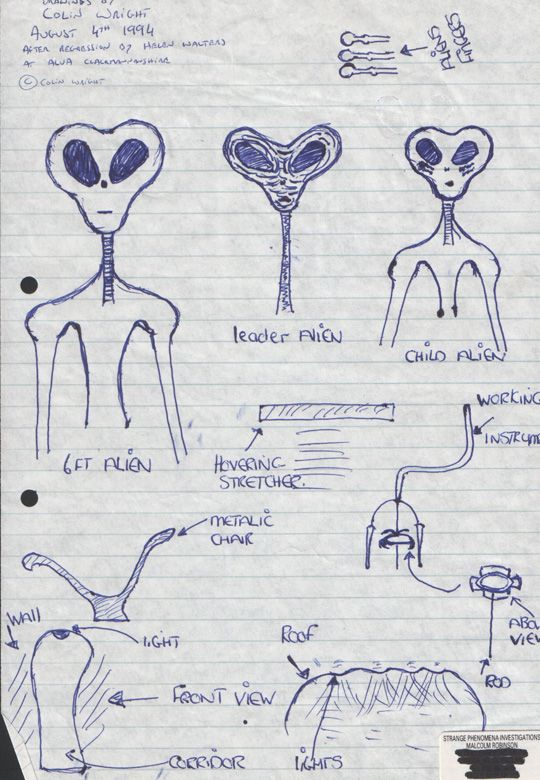 DRAWINGS BY
COLIN WRIGHT
AUGUST 4TH 1994
AFTER REGRESSION BY HELEN WALTERS
AT ALVA CLACKMANNANSHIRE
© COLIN WRIGHT
leader ALIEN
CHILD ALIEN
6FT ALIEN
HOVERING
STRETCHER.
WORKING
INSTRUM
METALIC
CHAIR
Wall
lIGHT
FRONT VIEW
CORRIDOR
ROOF
lIGHTS
ABOV
VIEW
ROD
STRANGE PHENOMENA INVESTIGATIONS
MALCOLM ROBINSON